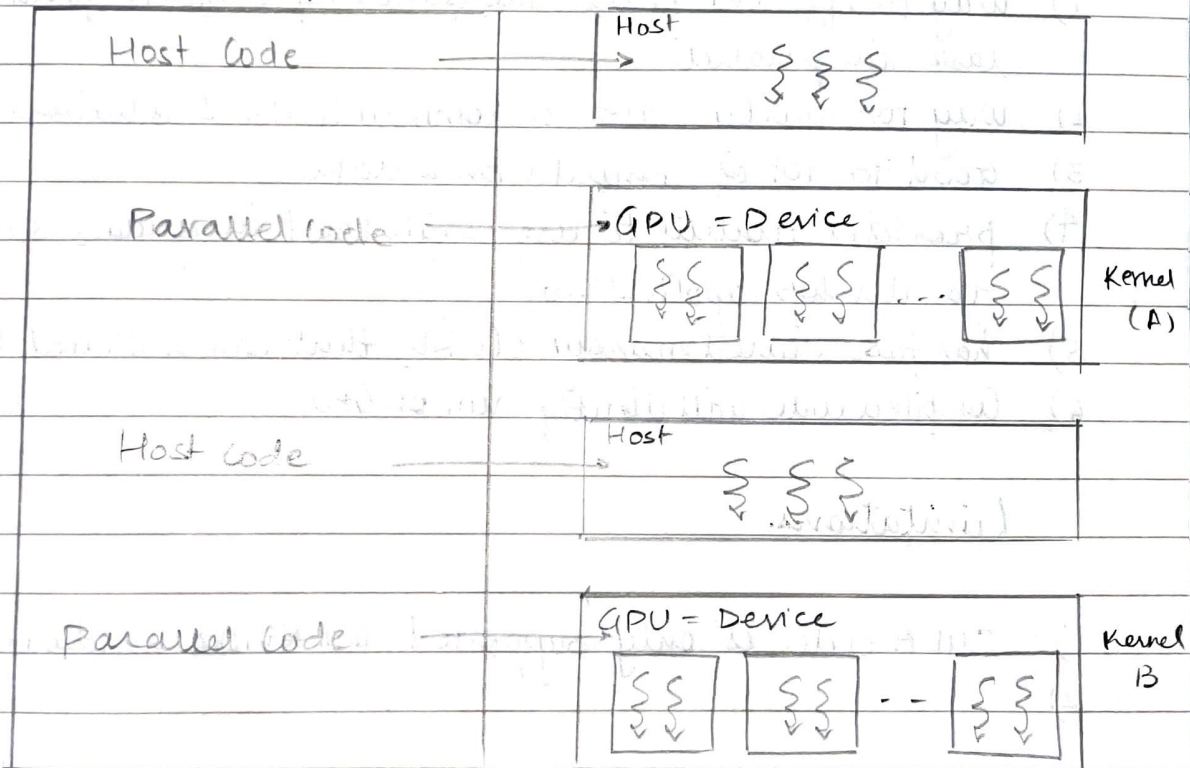 Host Code
Host
Parallel code
GPU = Device
...
Kernel
(A)
Host code
Host
Parallel code
GPU = Device
Kernel
B